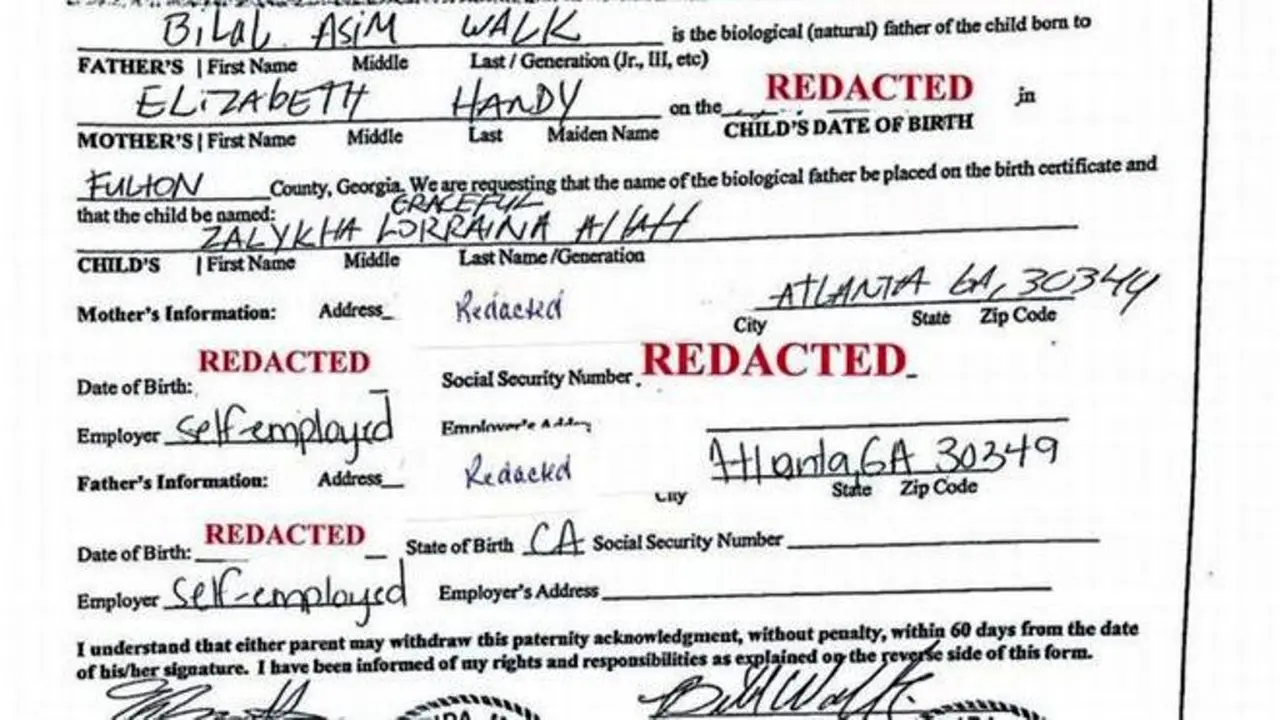 BiLAL ASiM WALK is the biological (natural) father of the child born to
FATHER'S | First Name Middle Last / Generation (Jr., III, etc)
ELIZAbETH HANDY on the REDACTED in
MOTHER'S | First Name Middle Last Maiden Name CHILD'S DATE OF BIRTH
FULTON County, Georgia. We are requesting that the name of the biological father be placed on the birth certificate and
that the child be named: GRACEFUL
ZALYKHA LORRAINA Allah
CHILD'S | First Name Middle Last Name /Generation
Mother's Information: Address Redacted ATLANTA GA, 30344
City State Zip Code
REDACTED REDACTED
Date of Birth: Social Security Number
Employer self-employed Employer's
Atlanta, GA 30349
Father's Information: Address Redacted City State Zip Code
REDACTED
Date of Birth: State of Birth CA Social Security Number
Employer self-employed Employer's Address
I understand that either parent may withdraw this paternity acknowledgment, without penalty, within 60 days from the date
of his/her signature. I have been informed of my rights and responsibilities as explained on the reverse side of this form.